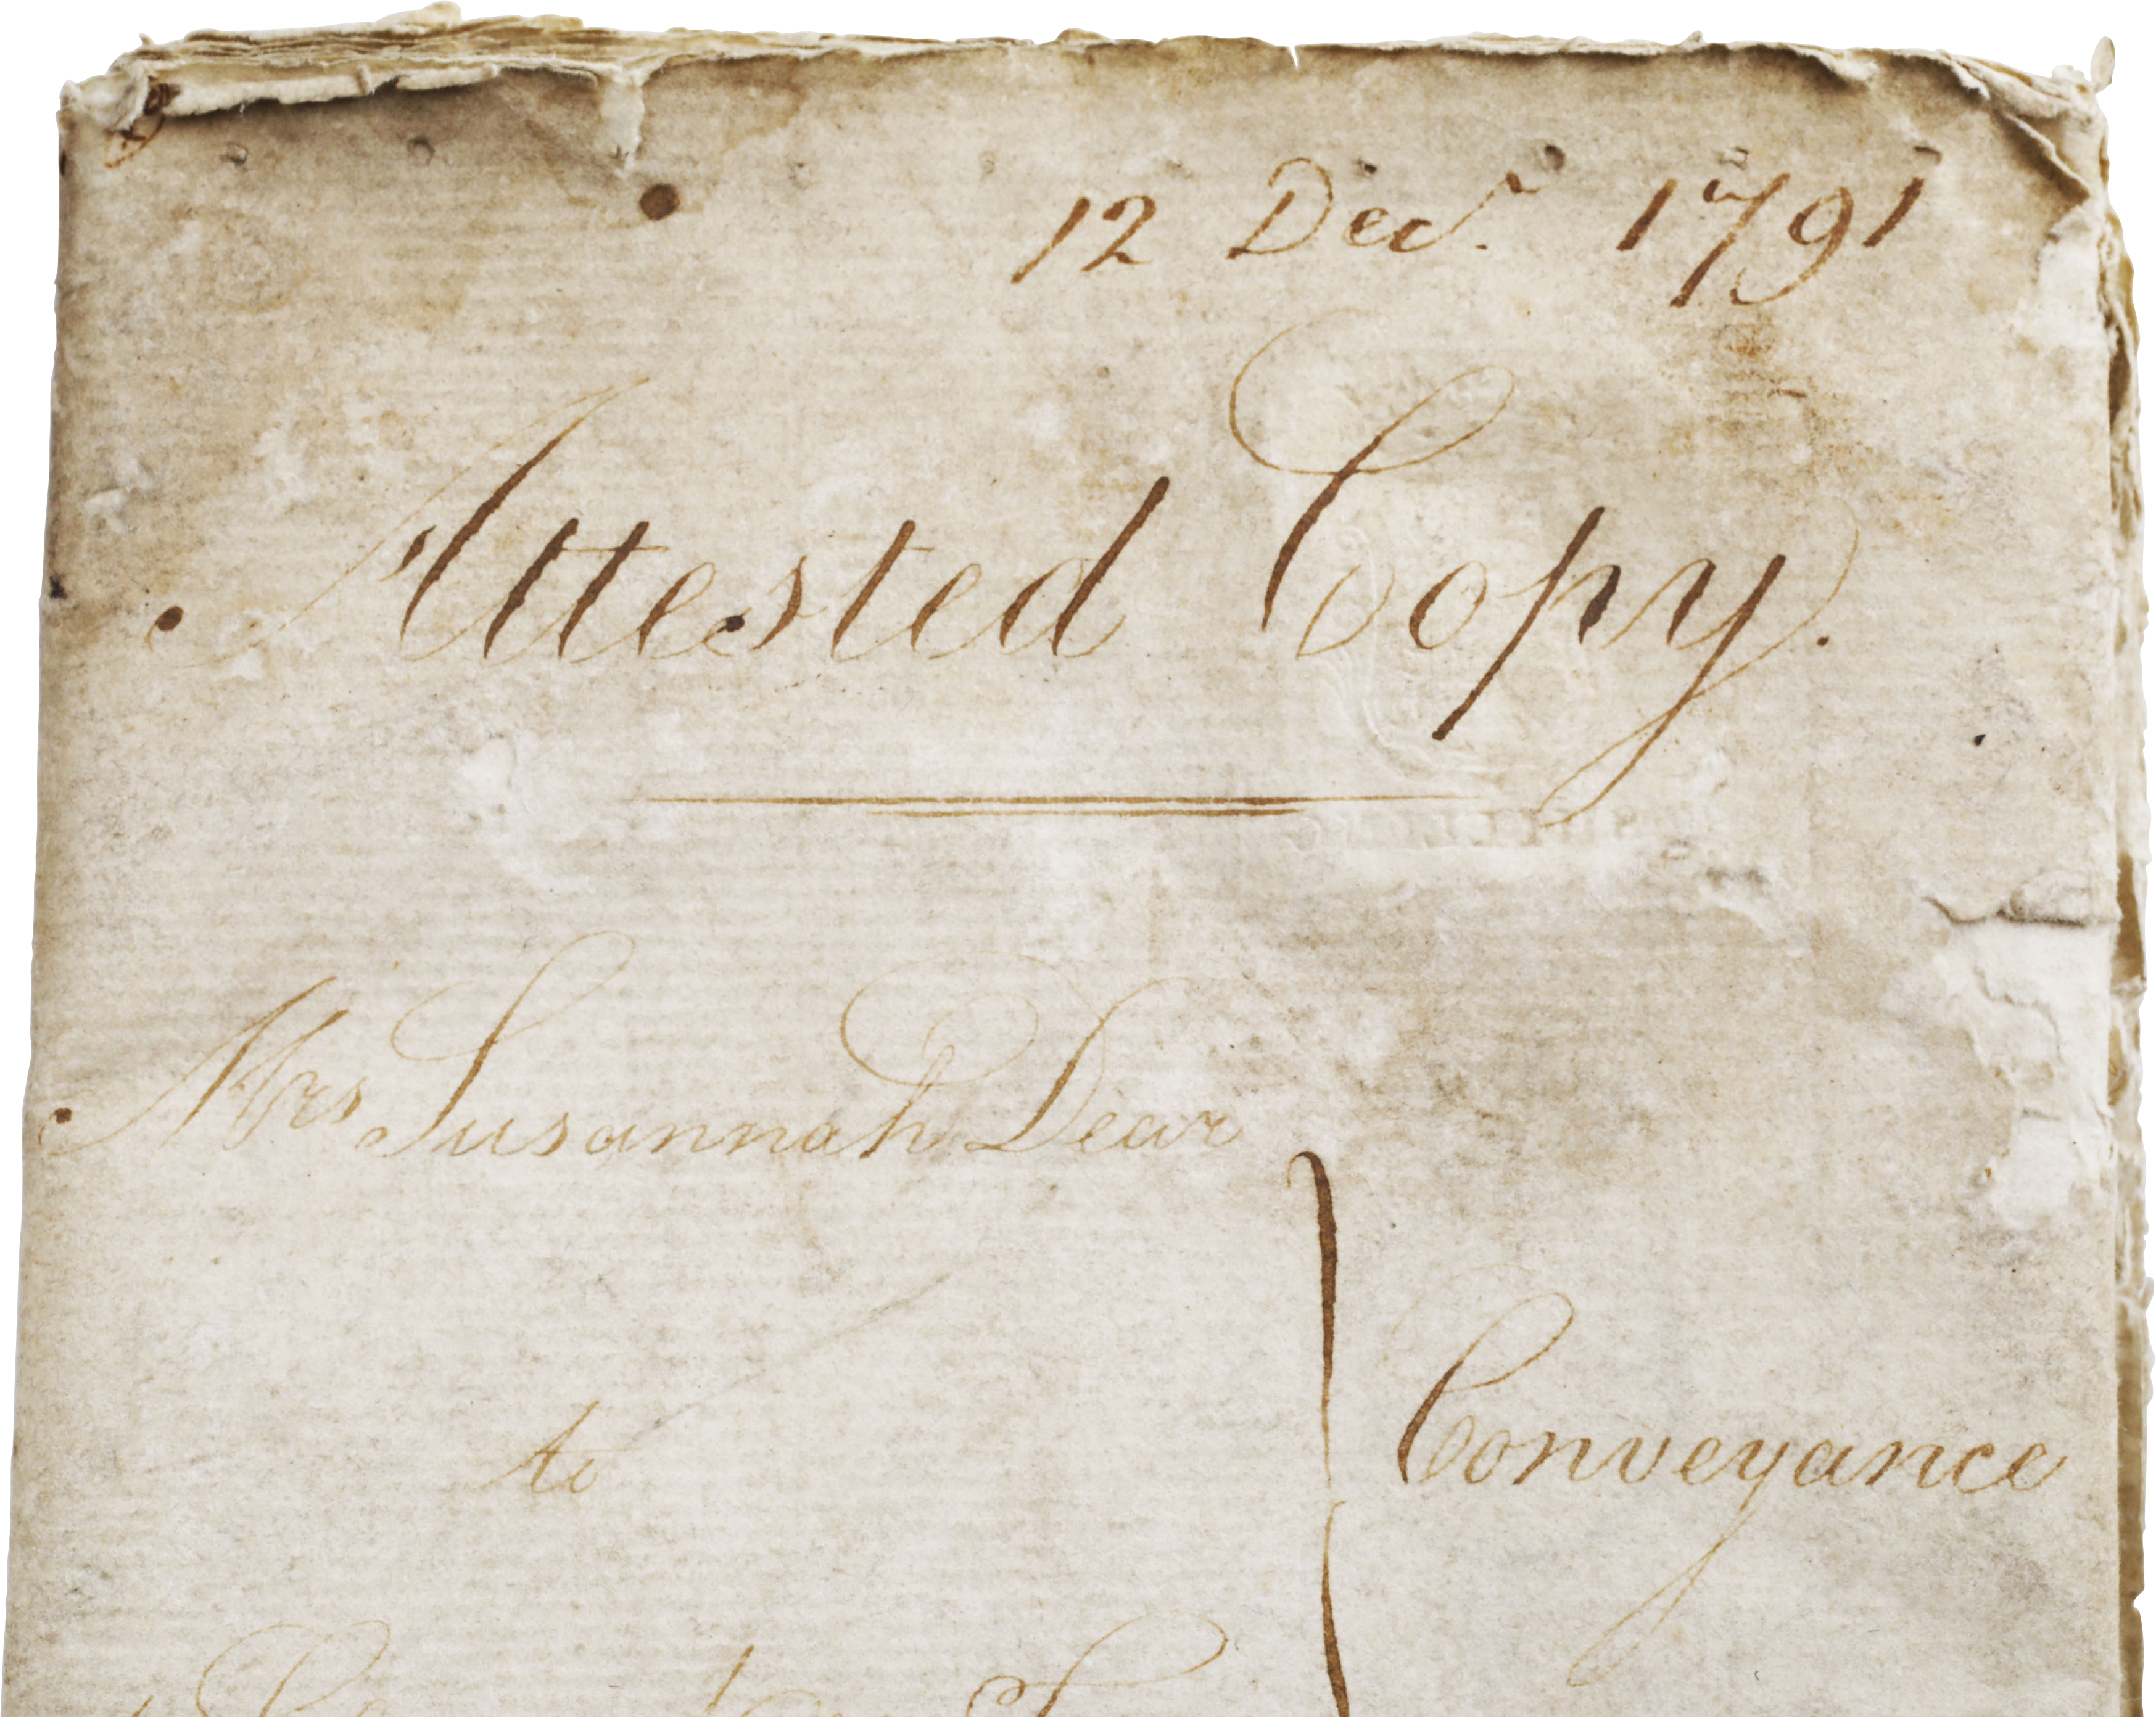 12 Decr. 1791
Attested Copy.
Mrs Susannah Dear
to
Conveyance